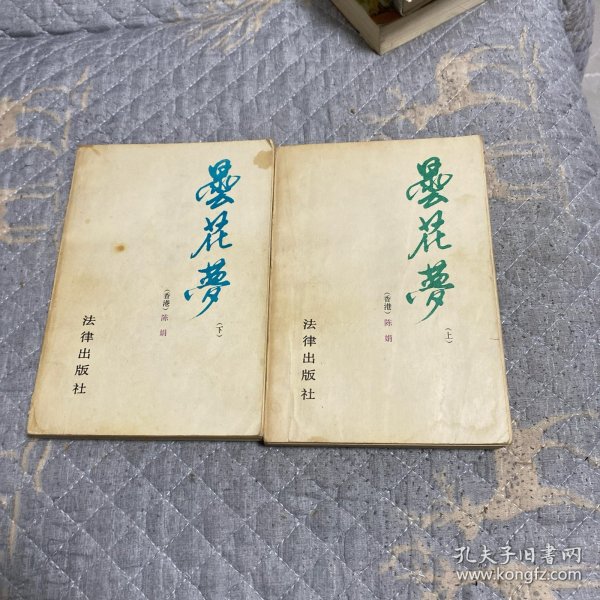 曇花夢
(下)
(香港)陈娟
法律出版社
曇花夢
(上)
(香港)陈娟
法律出版社
孔夫子旧书网
www.kongfz.com